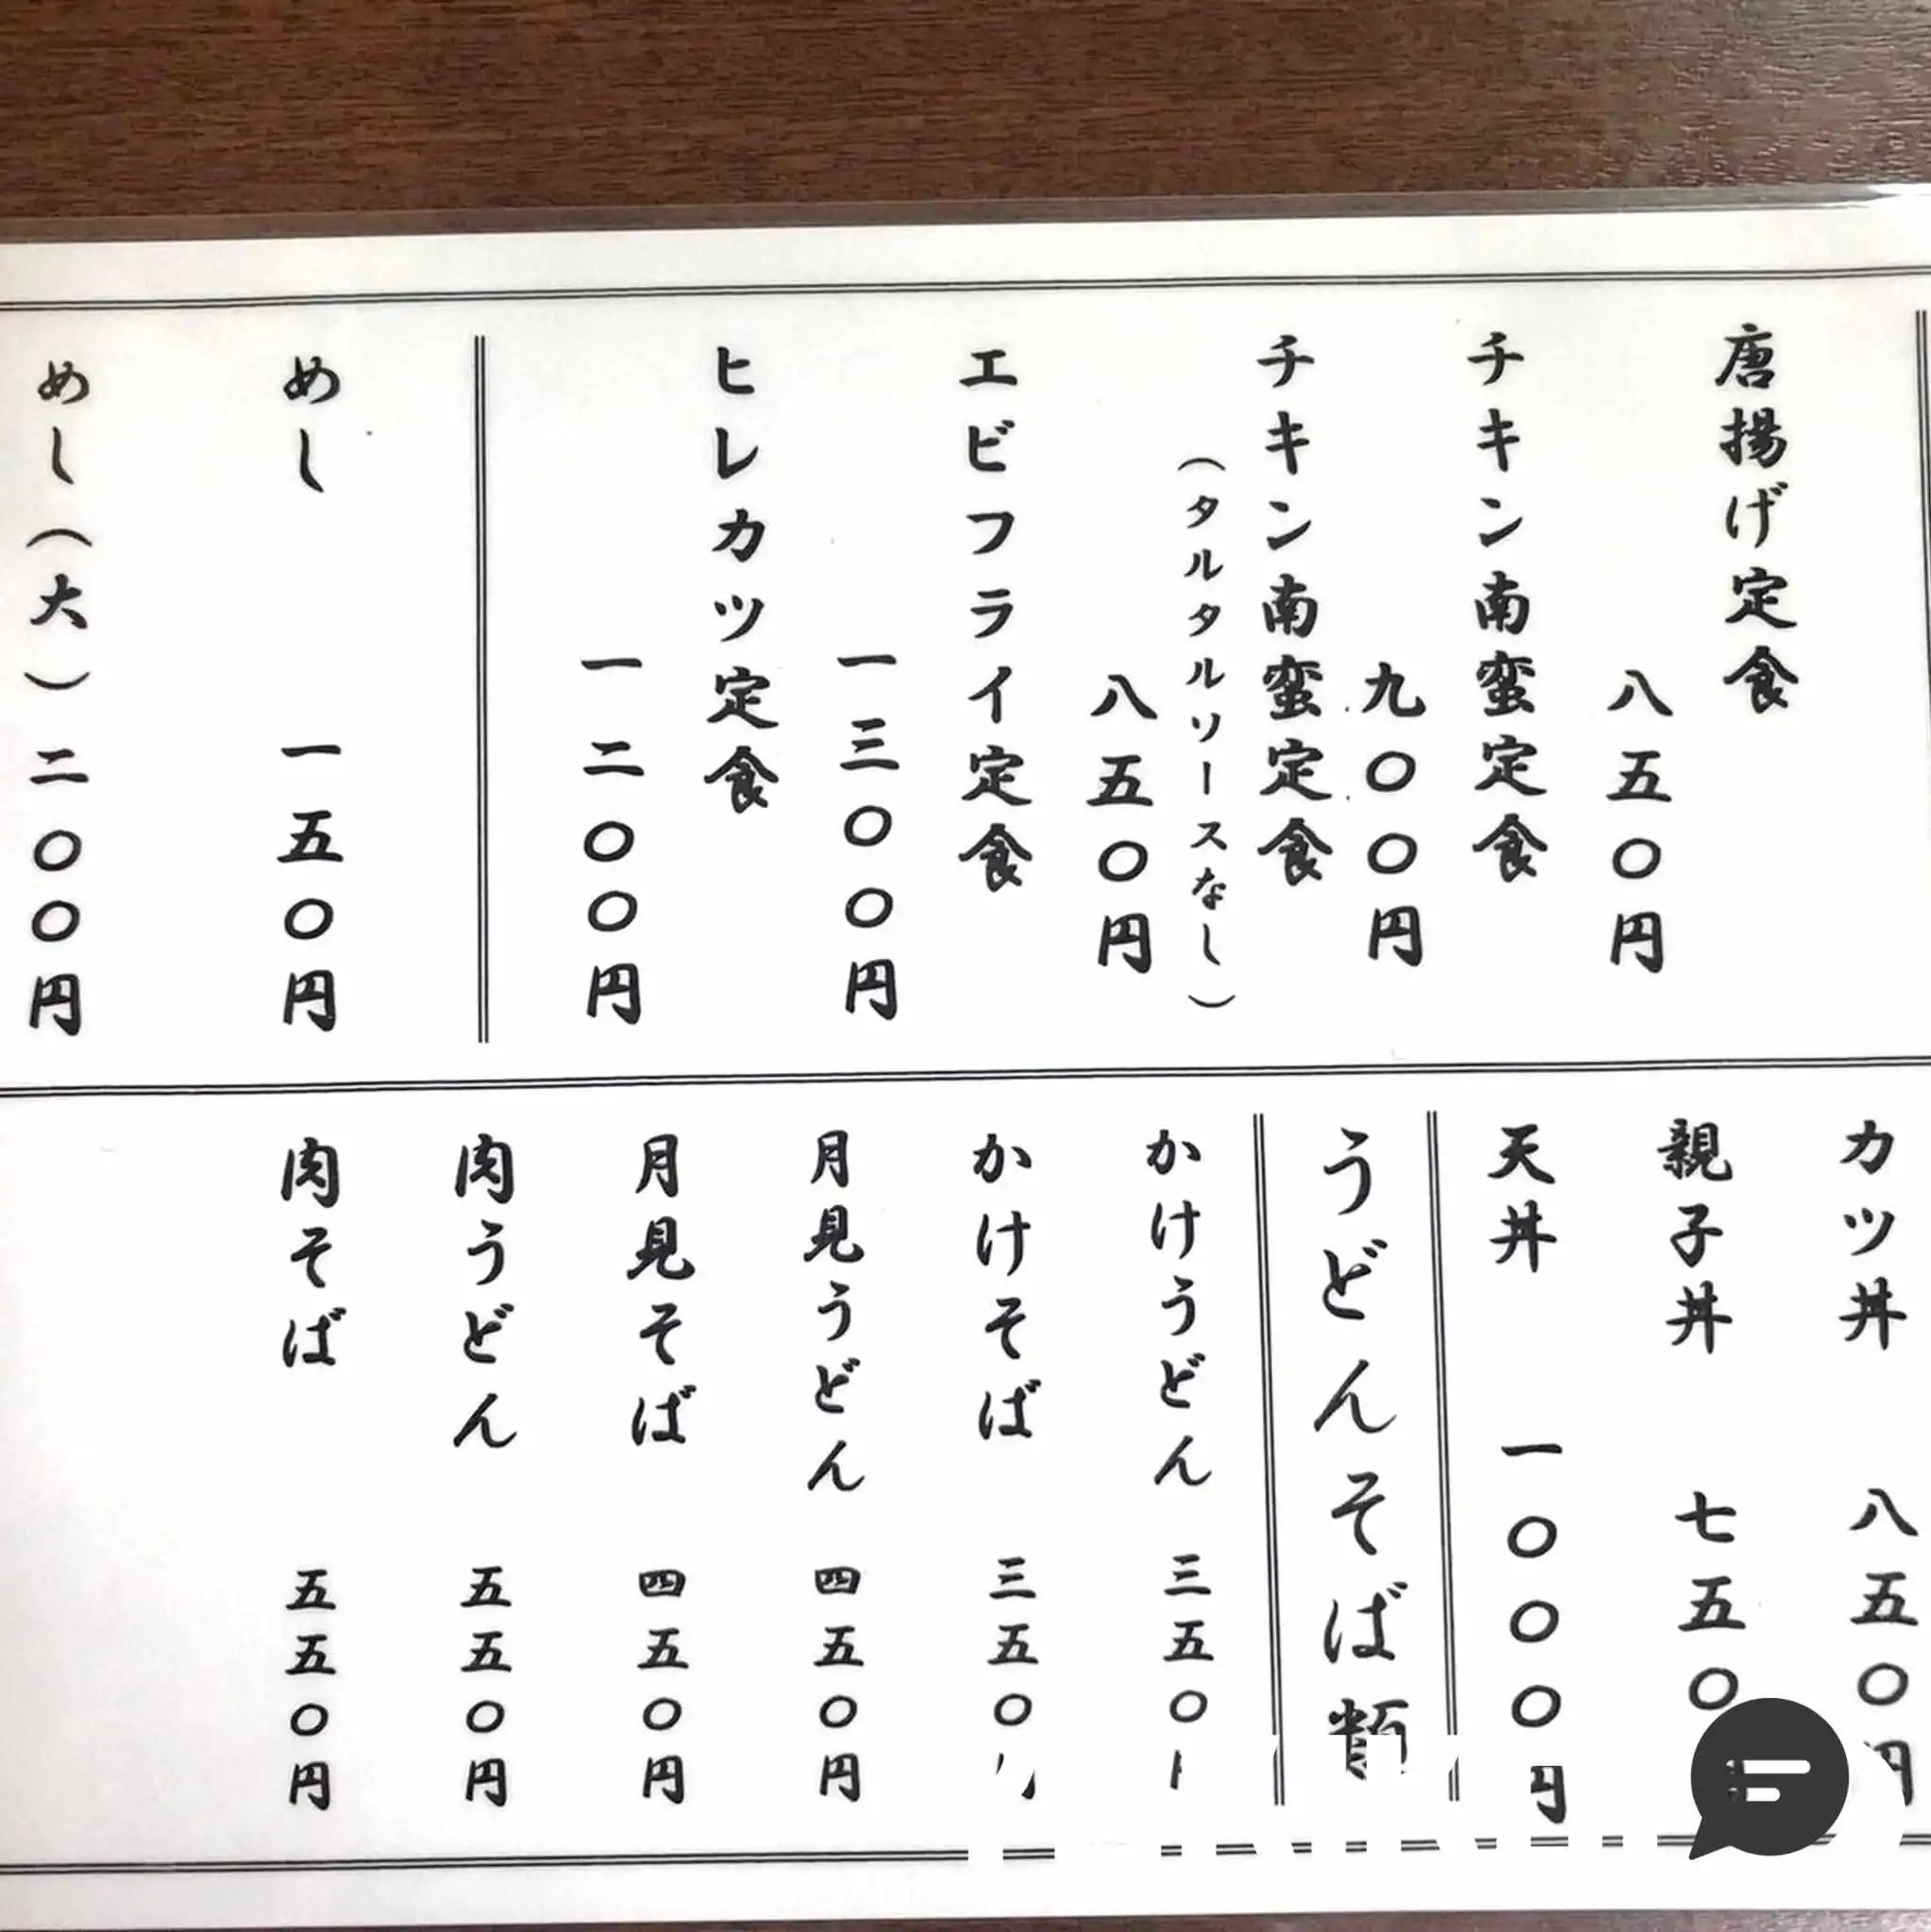 唐揚げ定食
八五〇円
チキン南蛮定食
九〇〇円
チキン南蛮定食
（タルタルソースなし）
八五〇円
エビフライ定食
一三〇〇円
ヒレカツ定食
一二〇〇円
めし 一五〇円
めし（大）二〇〇円
カツ丼 八五〇円
親子丼 七五〇
天丼 一〇〇〇円
うどんそば類
かけうどん 三五〇
かけそば 三五〇
月見うどん 四五〇円
月見そば 四五〇円
肉うどん 五五〇円
肉そば 五五〇円